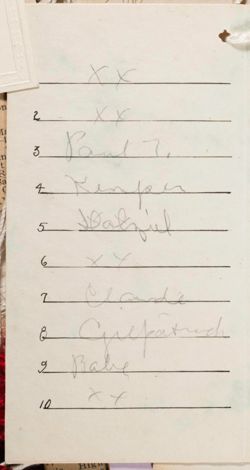 X X
2 X X
3 Paul T.
4 Kemper
5 Dalziel
6 X X
7 Claude
8 Gilpatrick
9 Babe
10 X X